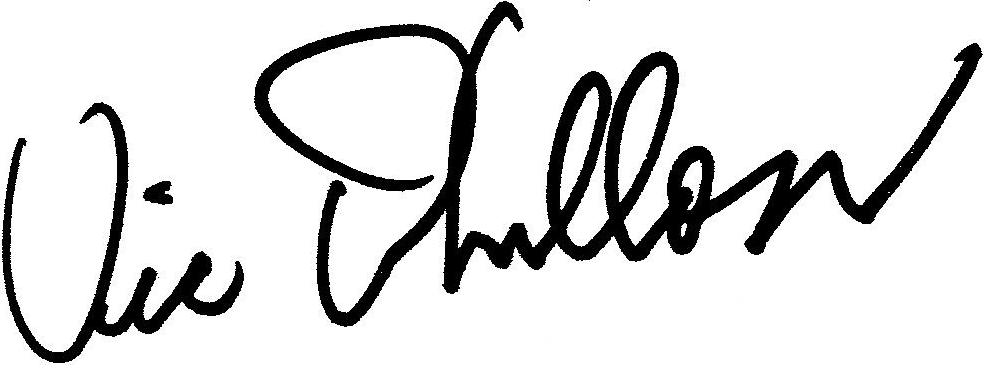 Vic Dhillon